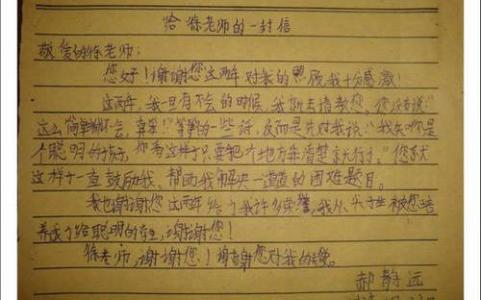 给徐老师的一封信
敬爱的徐老师：
您好！谢谢您这两年对我的照顾，我十分感激！
这两年，我一旦有不会的时候，我就去请教您，您没有说“
这么简单都不会，真笨！”等等的一些话，反而是对我说：“我知道你是
个聪明的孩子，你看这样子只要把个地方弄清楚就行了。”您就
这样子一直鼓励我，帮助我解决一道道的困难题目。
我也谢谢您这两年给了我许多荣誉，我从 被您培
养成了 聪明的 ，谢谢您！
徐老师，谢谢您！谢谢您对我的
郝静远